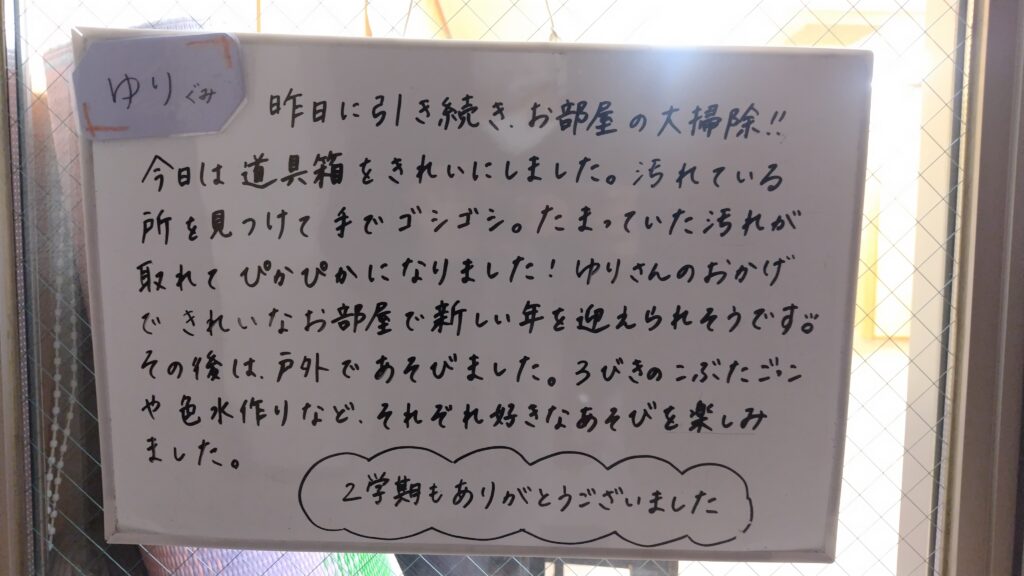 ゆりぐみ
昨日に引き続き、お部屋の大掃除!!
今日は道具箱をきれいにしました。汚れている
所を見つけて手でゴシゴシ。たまっていた汚れが
取れてぴかぴかになりました!ゆりさんのおかげ
できれいなお部屋で新しい年を迎えられそうです。
その後は、戸外であそびました。3びきのこぶたごっこ
や色水作りなど、それぞれ好きなあそびを楽しみ
ました。
2学期もありがとうございました